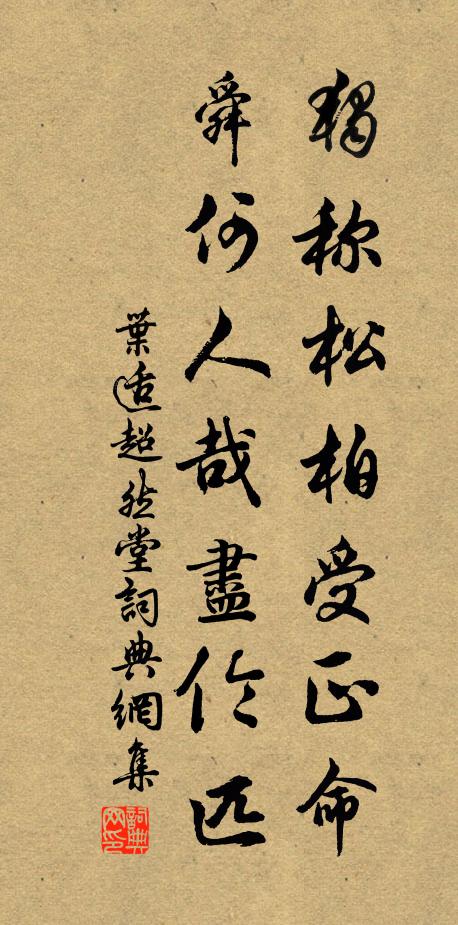 獨称松柏受正命
舜何人哉盡倫匹
葉适超然堂詞典網集
詞典网印